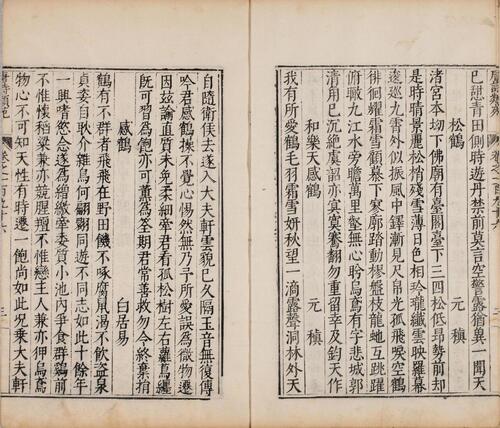 已甜青田側時遊丹禁前莫言空警露猶冀一聞天
松鶴 元稹
渚宮本坳下佛廟有臺閣臺下三四松低昂勢前却
是時晴景麗松梢殘雪薄日色相玲瓏纖雲映羅幕
逡巡九霄外似振風中鐸漸見尺帛光孤飛唳空鶴
徘徊耀霜雪顧慕下寥廓踏動樛盤枝龍蛇互跳躍
俯瞰九江水旁瞻萬里壑無心眄烏鳶有字悲城郭
清角已沉絶虞韶亦冥寞鶱翻勿重留幸及鈞天作
和樂天感鶴 元稹
我有所愛鶴毛羽霜雪妍秋望一滴露聲洞林外天
自隨衛侯去遂入大夫軒雲貌已久隔玉音無復傳
吟君感鶴操不覺心惕然無乃予所愛誤為微物遷
因茲諭直質未免柔細牽君看孤松樹左右蘿蔦纏
既可習為飽亦可薰為荃期君常善救勿令終棄捐
感鶴 白居易
鶴有不群者飛飛在野田饑不啄腐鼠渴不飲盜泉
貞姿自耿介雜鳥何翩翾同遊不同志如此十餘年
一興嗜慾念遂為矰繳牽委質小池內爭食群雞前
不惟懷稻粱兼亦競腥羶不惟戀主人兼亦狎烏鳶
物心不可知天性有時遷一飽尚如此况乘大夫軒